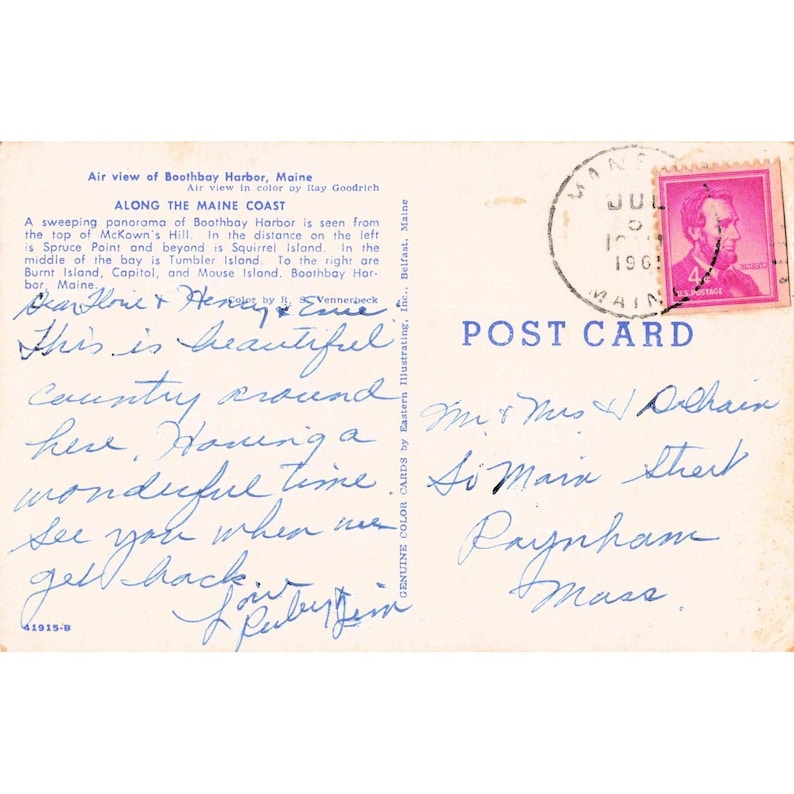 Air view of Boothbay Harbor, Maine
Air view in color by Ray Goodrich
ALONG THE MAINE COAST
A sweeping panorama of Boothbay Harbor is seen from
the top of McKown's Hill. In the distance on the left
is Spruce Point and beyond is Squirrel Island. In the
middle of the bay is Tumbler Island. To the right are
Burnt Island, Capitol, and Mouse Island, Boothbay Har-
bor, Maine.
Color by R. S. Vennerbeck
Dear & Henry &
This is beautiful
country around
here. Having a
wonderful time.
See you when we
get back.
Ruby & Jim
41915-B
GENUINE COLOR CARDS by Eastern Illustrating, Inc., Belfast, Maine
JUL
5
MAINE
LINCOLN
4¢
U.S. POSTAGE
POST CARD
Mr. & Mrs H
So Main Street
Raynham
Mass.